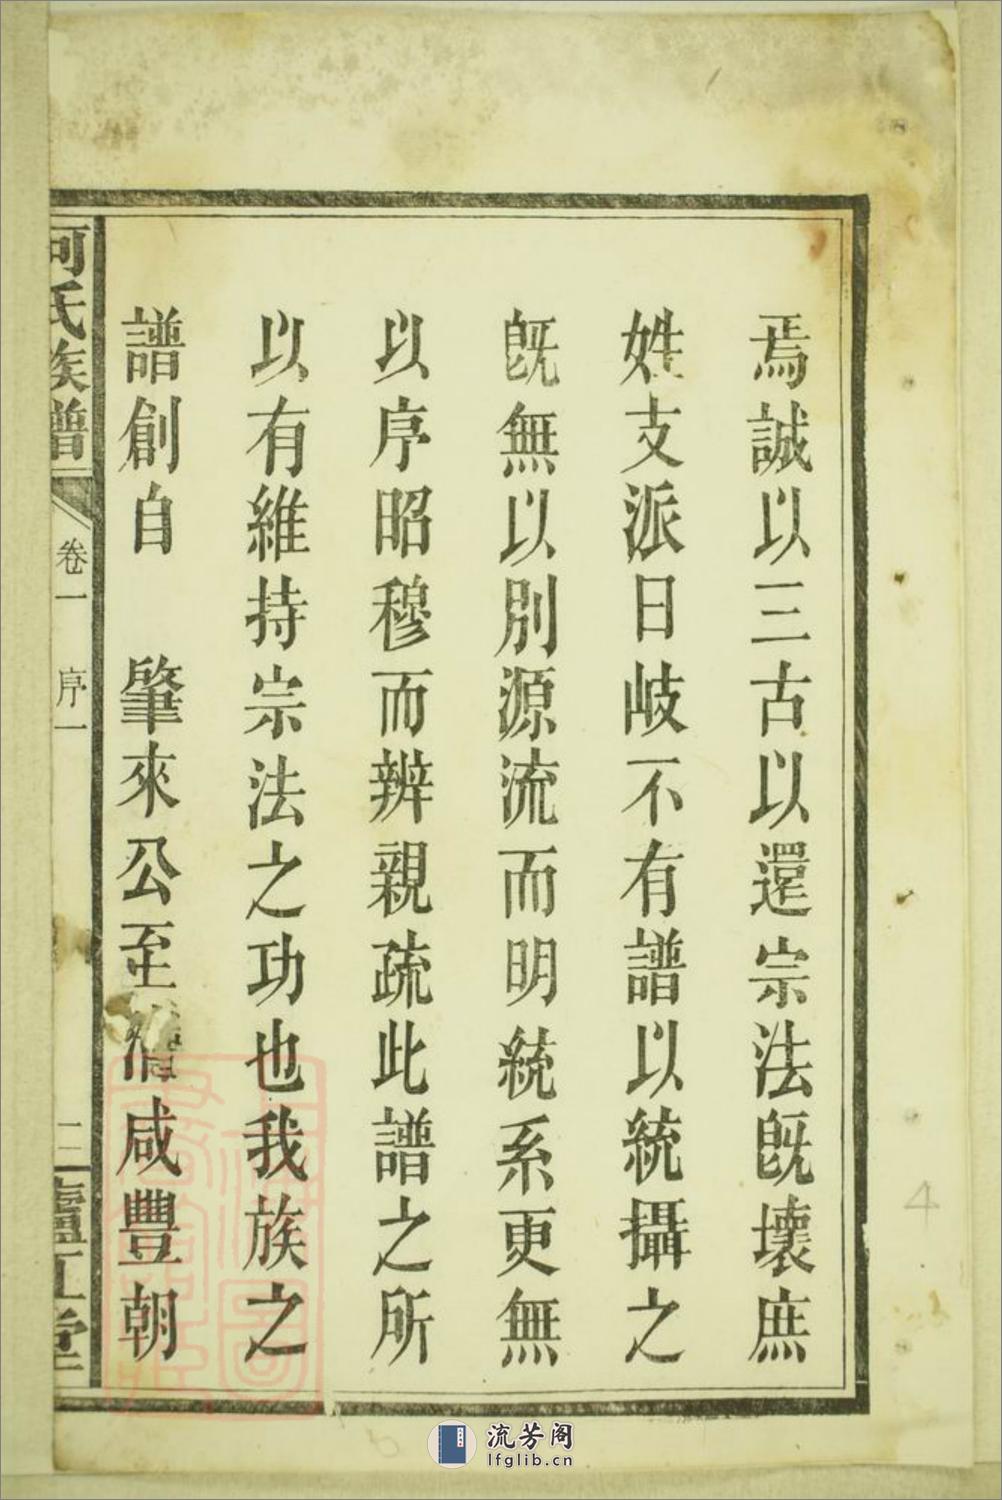 焉誠以三古以還宗法既壞庶
姓支派日岐不有譜以統攝之
既無以別源流而明統系更無
以序昭穆而辨親疏此譜之所
以有維持宗法之功也我族之
譜創自　肇來公至清咸豐朝
何氏族譜
卷一　序一
二
廬江堂
4
流芳阁
lfglib.cn